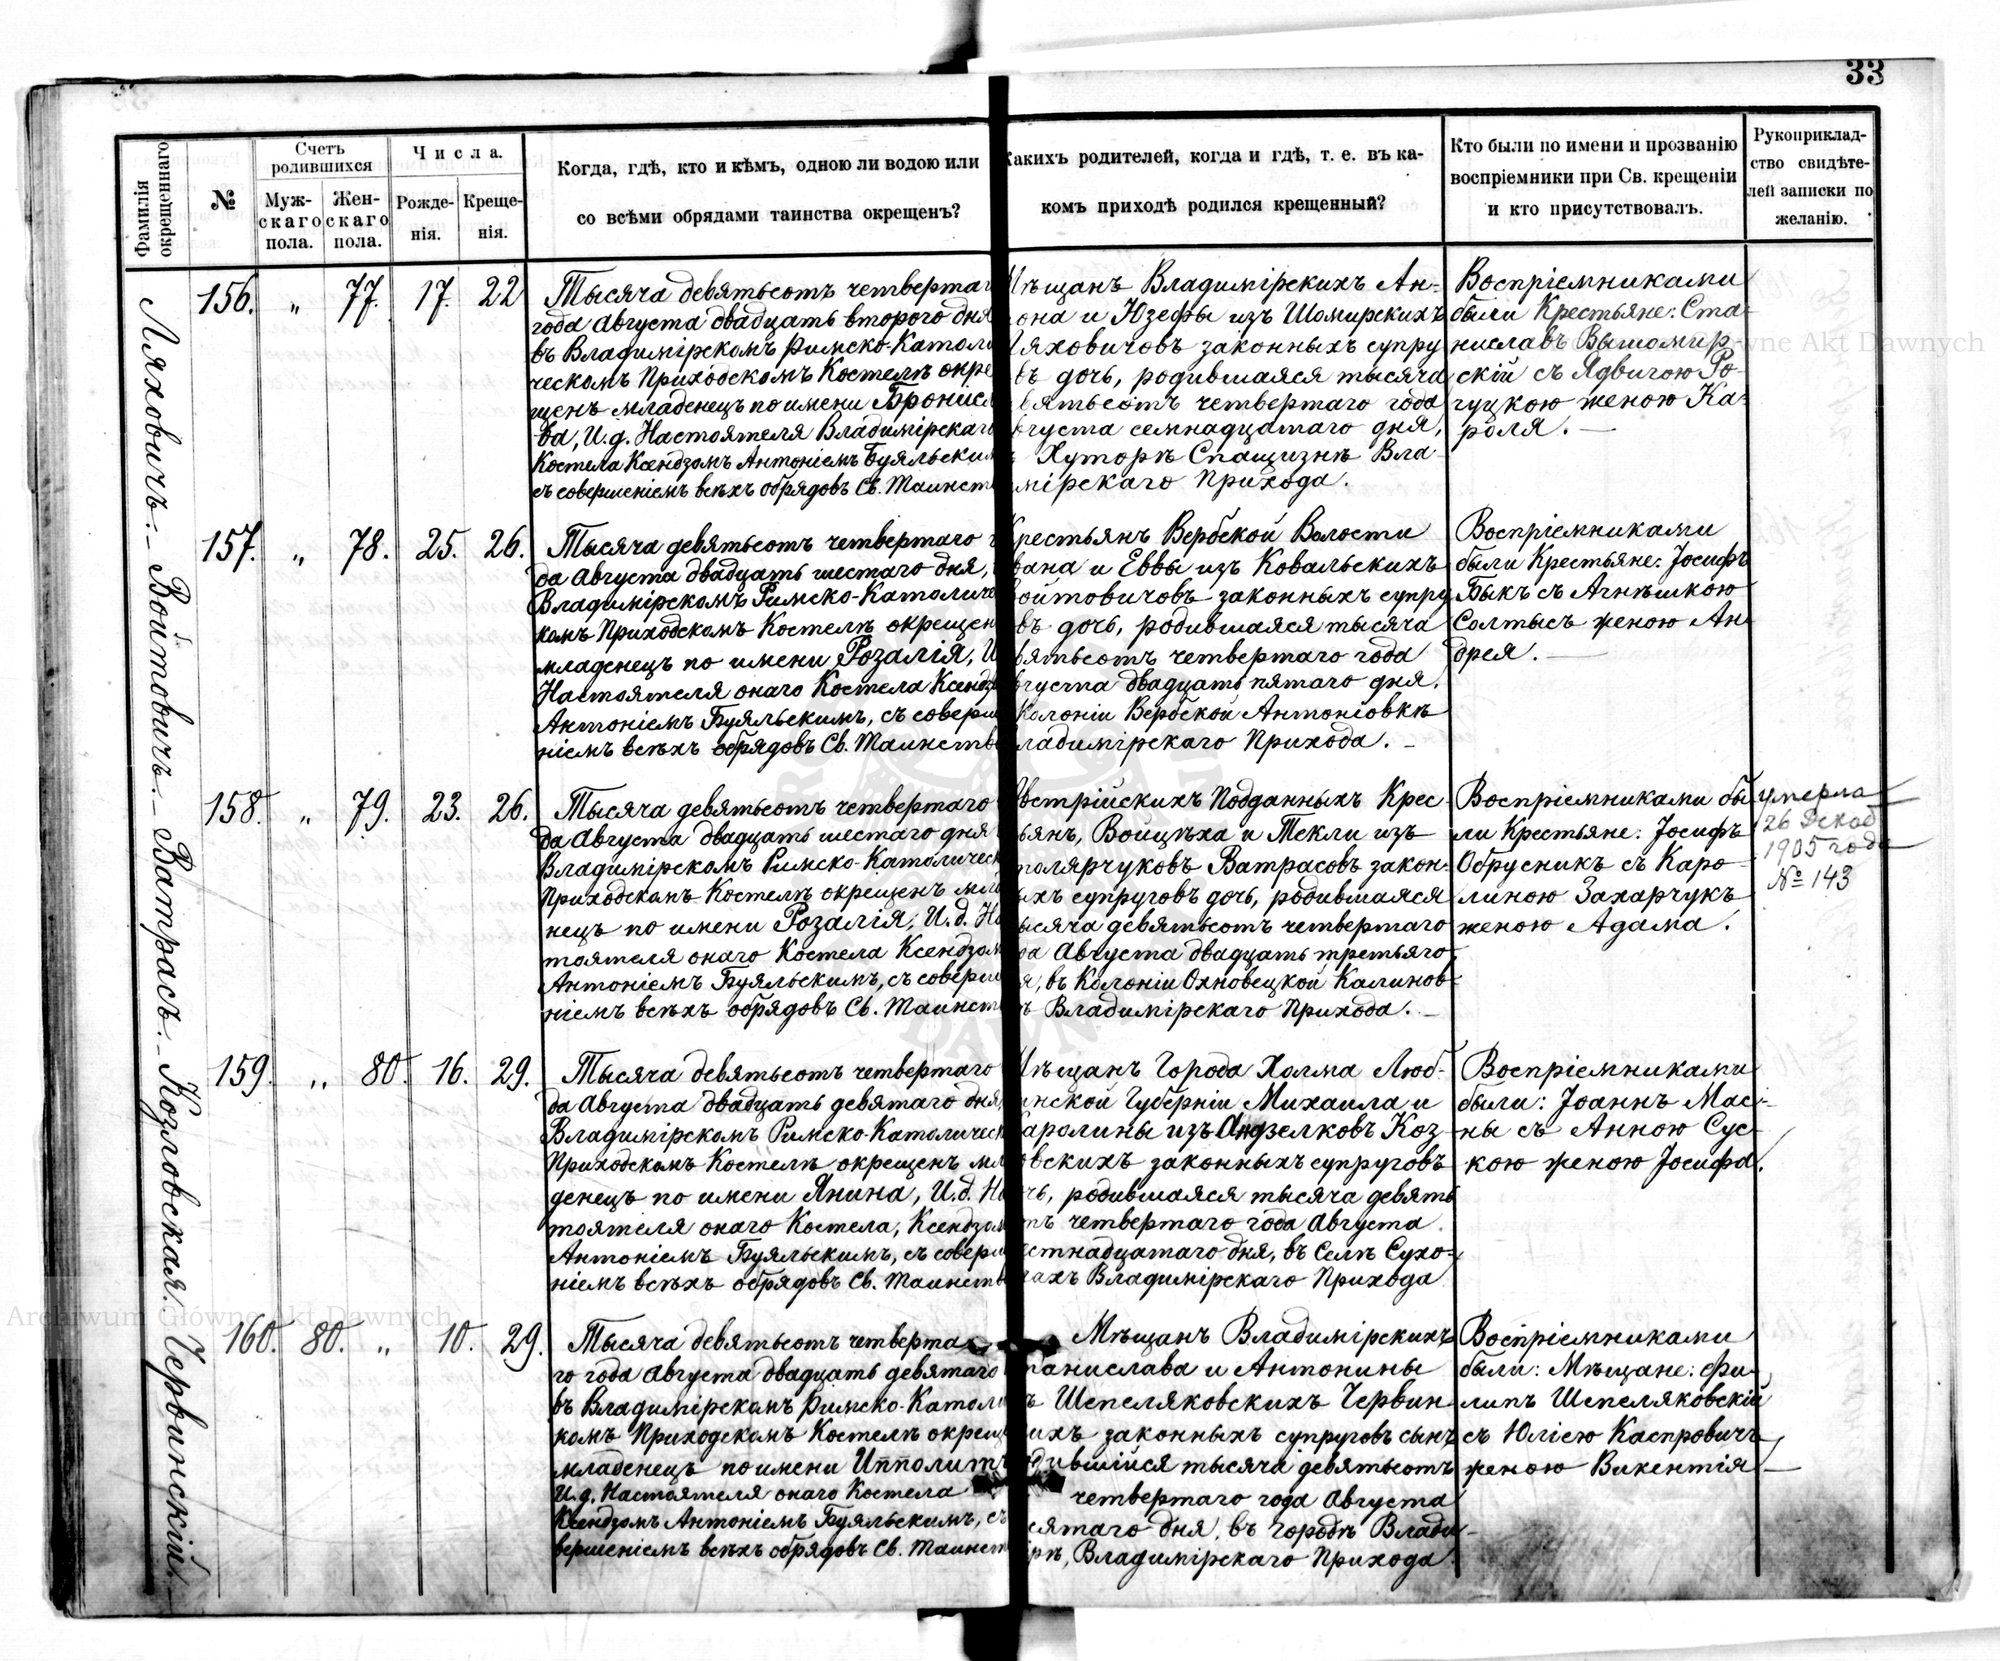 33
Фамилія
окрещеннаго
№
Счетъ
родившихся
Муж-
скаго
пола.
Жен-
скаго
пола.
Числа.
Рожде-
нія.
Креще-
нія.
Когда, гдѣ, кто и кѣмъ, одною ли водою или
со всѣми обрядами таинства окрещенъ?
Какихъ родителей, когда и гдѣ, т. е. въ ка-
комъ приходѣ родился крещенный?
Кто были по имени и прозванію
воспріемники при Св. крещеніи
и кто присутствовалъ.
Рукоприклад-
ство свидѣте-
лей записки по
желанію.
Ляховичъ.
156. „ 77. 17. 22
Тысяча девятьсотъ четвертаг
года Августа двадцать второго дня
въ Владимірскомъ Римско-Католи
ческомъ Приходскомъ Костелѣ окре
щенъ младенецъ по имени Бронисл
ва, И.д. Настоятеля Владимірскаго
Костела Ксендзомъ Антоніемъ Буяльским
съ совершеніемъ всѣхъ обрядовъ Св. Таинст
ѣщанъ Владимірскихъ Ан-
она и Юзефы изъ Шомирскихъ
яховичовъ законныхъ супру
въ дочь, родившаяся тысяча
вятьсотъ четвертаго года
вгуста семнадцатаго дня,
Хуторѣ Спащизнѣ Вла-
мірскаго Прихода.
Воспріемниками
были Крестьяне: Ста-
ниславъ Вышомир-
скій съ Ядвигою Ро-
гуцкою женою Ка-
роля.
Войтовичъ.
157. „ 78. 25. 26.
Тысяча девятьсотъ четвертаго г
да Августа двадцать шестаго дня,
Владимірскомъ Римско-Католиче
комъ Приходскомъ Костелѣ окрещен
младенецъ по имени Розалія, И
Настоятеля онаго Костела Ксендз
Антоніемъ Буяльскимъ, съ соверш
ніемъ всѣхъ обрядовъ Св. Таинств
Крестьянъ Вербской Волости
вана и Еввы изъ Ковальскихъ
ойтовичовъ законныхъ супру
въ дочь, родившаяся тысяча
вятьсотъ четвертаго года
вгуста двадцать пятаго дня.
Колоніи Вербской Антоніовкѣ
ладимірскаго Прихода.
Воспріемниками
были Крестьяне: Іосифъ
Быкъ съ Агнѣшкою
Солтысъ женою Ан
дрея.
Ватрасъ.
158. „ 79. 23. 26.
Тысяча девятьсотъ четвертаго
да Августа двадцать шестаго дня
Владимірскомъ Римско-Католическ
Приходскомъ Костелѣ окрещенъ мла
нецъ по имени Розалія, И.д. На
тоятеля онаго Костела Ксендзом
Антоніемъ Буяльскимъ, съ соверш
ніемъ всѣхъ обрядовъ Св. Таинст
встрійскихъ Подданныхъ Крес
ьянъ, Войцѣха и Текли изъ
толярчуковъ Ватрасовъ закон-
ыхъ супруговъ дочь, родившаяся
ысяча девятьсотъ четвертаго
да Августа двадцать третьяго
я, въ Колоніи Охновецкой Калинов-
ѣ Владимірскаго Прихода.
Воспріемниками бы
ли Крестьяне: Іосифъ
Обрусникъ съ Каро-
линою Захарчукъ
женою Адама.
умерла
26 Декаб
1905 года
№ 143
Козловская.
159. „ 80. 16. 29.
Тысяча девятьсотъ четвертаго
да Августа двадцать девятаго дня,
Владимірскомъ Римско-Католическ
Приходскомъ Костелѣ окрещенъ мл
денецъ по имени Янина, И.д. На
тоятеля онаго Костела, Ксендзом
Антоніемъ Буяльскимъ, съ соверш
ніемъ всѣхъ обрядовъ Св. Таинств
ѣщанъ Города Холма Люб-
инской Губерніи Михаила и
аролины изъ Коз-
овскихъ законныхъ супруговъ
чь, родившаяся тысяча девять
тъ четвертаго года Августа
естнадцатаго дня, въ Селѣ Сухо-
ахъ Владимірскаго Прихода
Воспріемниками
были: Іоаннъ Мас-
ны съ Анною Сус-
кою женою Іосифа.
Червинскій.
160. 80. „ 10. 29.
Тысяча девятьсотъ четверта
го года Августа двадцать девятаго
въ Владимірскомъ Римско-Католи
комъ Приходскомъ Костелѣ окрещ
младенецъ по имени Ипполитъ
И.д. Настоятеля онаго Костела
Ксендзомъ Антоніемъ Буяльскимъ, съ
вершеніемъ всѣхъ обрядовъ Св. Таинст
Мѣщанъ Владимірскихъ
танислава и Антонины
ъ Шепеляковскихъ Червин
ихъ законныхъ супруговъ сынъ
дившійся тысяча девятьсотъ
четвертаго года Августа
сятаго дня, въ городѣ Влади-
рѣ, Владимірскаго Прихода.
Воспріемниками
были: Мѣщане: Фи-
липъ Шепеляковскій
съ Юліею Каспровичъ
женою Викентія
Archiwum Główne Akt Dawnych
Główne Akt Dawnych